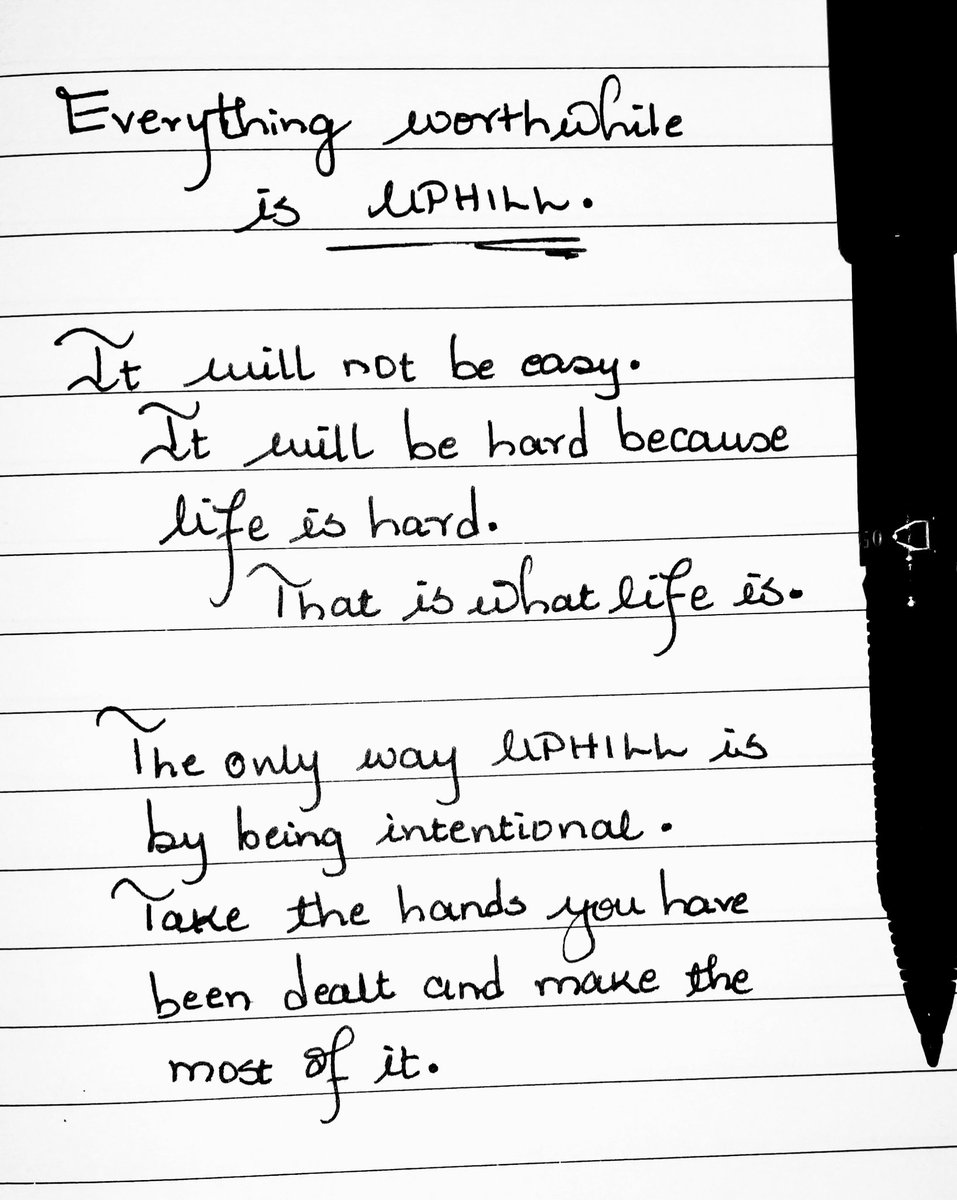 Everything worthwhile
is UPHILL.
It will not be easy.
It will be hard because
life is hard.
That is what life is.
The only way UPHILL is
by being intentional.
Take the hands you have
been dealt and make the
most of it.